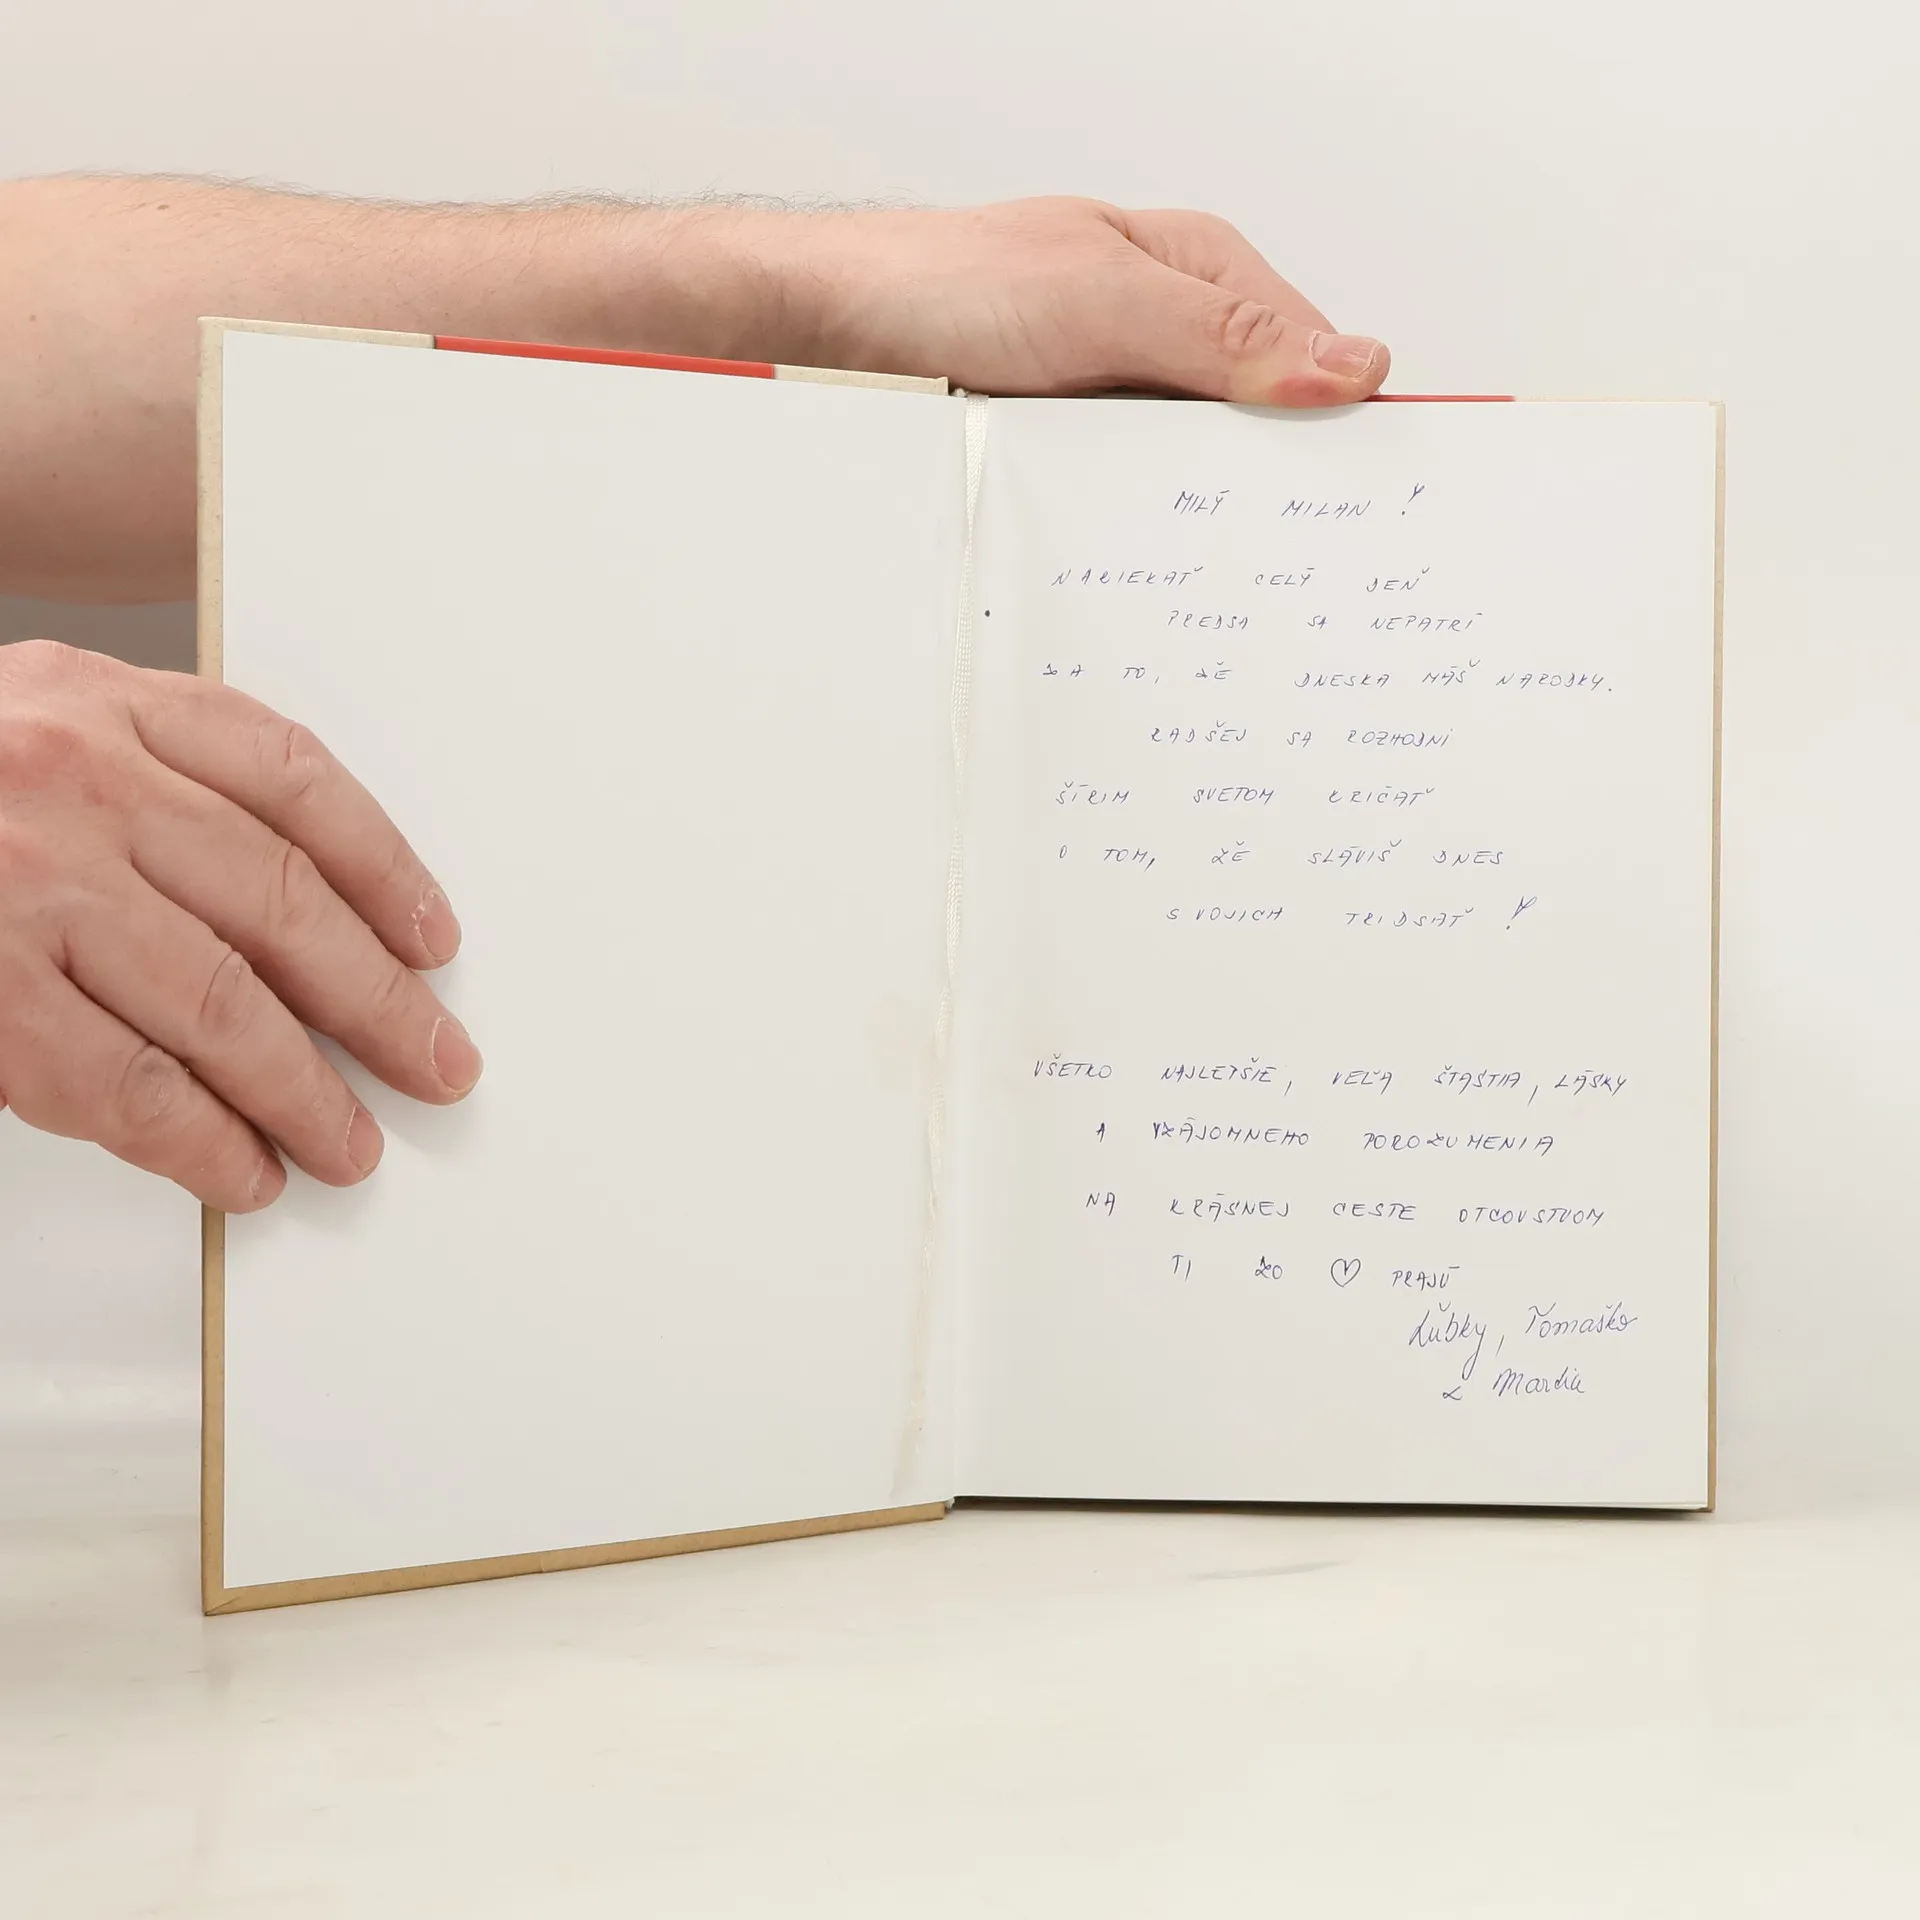 MILÝ MILAN !
NARIEKAŤ CELÝ DEŇ
PREDSA SA NEPATRÍ
ZA TO, ŽE DNESKA MÁŠ NARODKY.
RADŠEJ SA ROZHODNI
ŠÍRIM SVETOM KRIČAŤ
O TOM, ŽE SLÁVIŠ DNES
SVOJICH TRIDSAŤ !
VŠETKO NAJLEPŠIE, VEĽA ŠTASTIA, LÁSKY
A VZÁJOMNEHO POROZUMENIA
NA KRÁSNEJ CESTE OTCOVSTVOM
TI ZO ♡ PRAJÚ
Tomaško